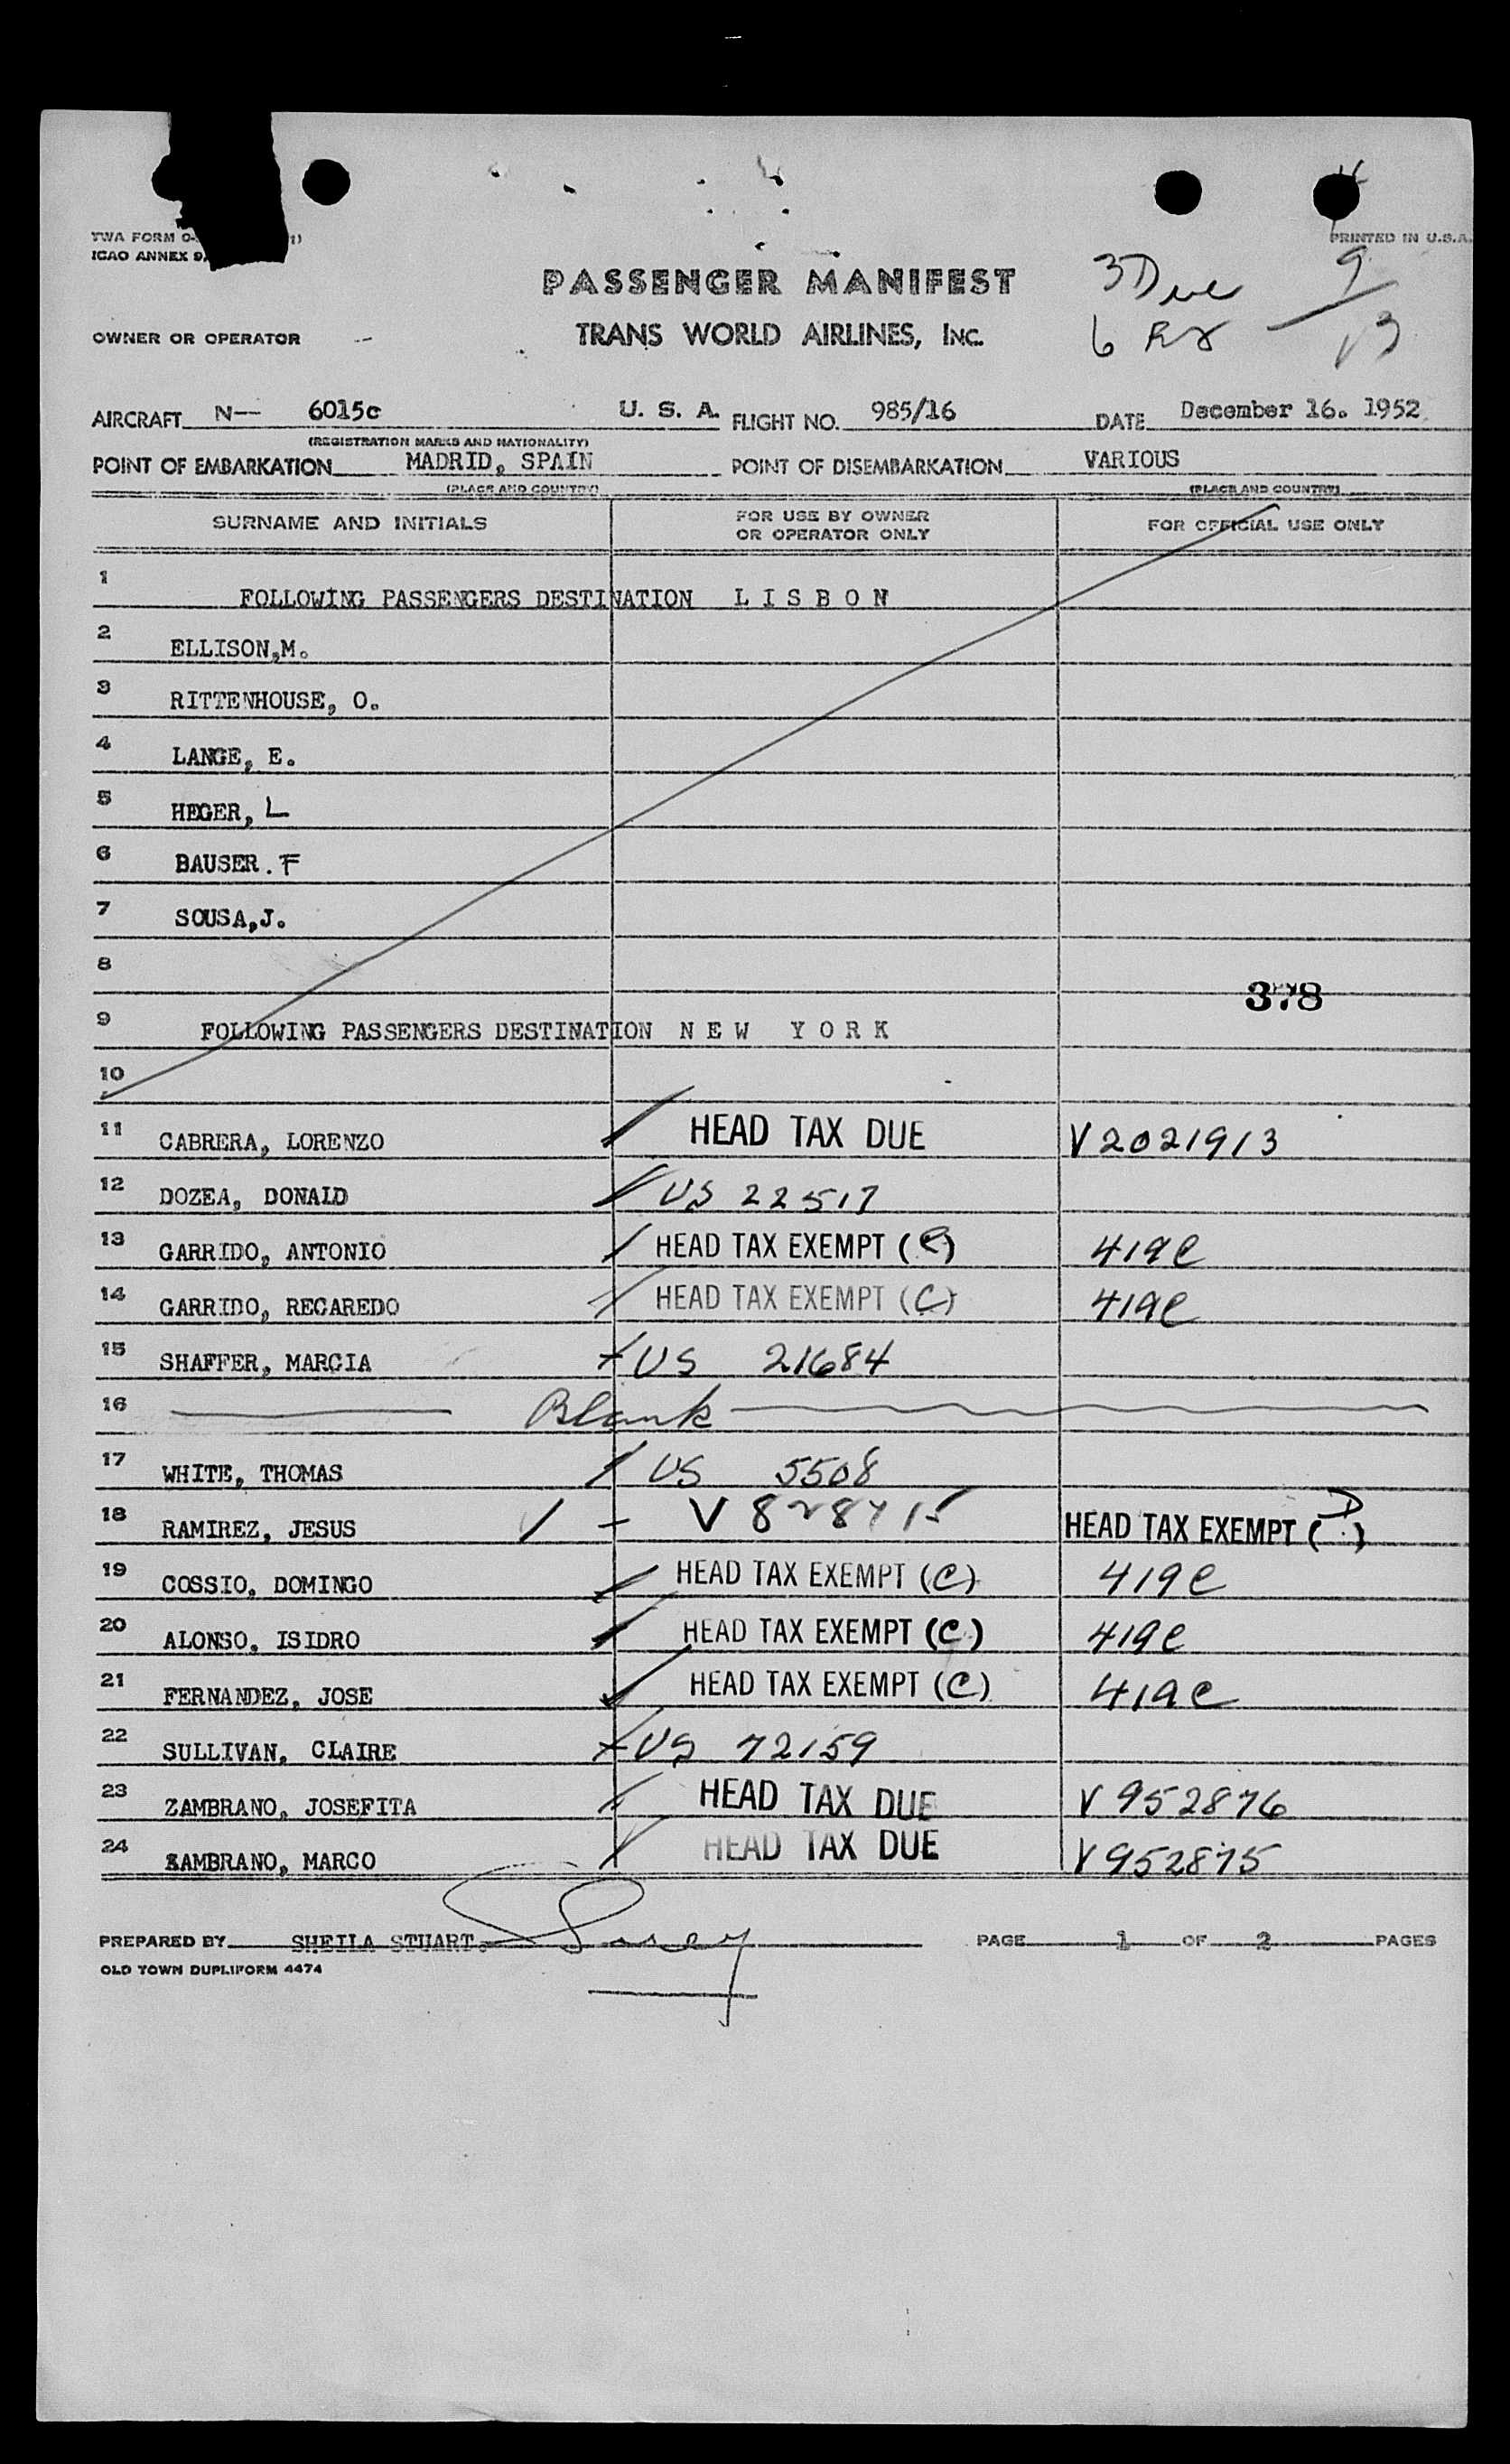 TWA FORM O-
ICAO ANNEX 9,
PRINTED IN U.S.A.
PASSENGER MANIFEST
TRANS WORLD AIRLINES, INC.
3 Due
6
9
13
OWNER OR OPERATOR
AIRCRAFT N— 6015c U. S. A. FLIGHT NO. 985/16 DATE December 16. 1952
(REGISTRATION MARKS AND NATIONALITY)
POINT OF EMBARKATION MADRID, SPAIN POINT OF DISEMBARKATION VARIOUS
(PLACE AND COUNTRY) (PLACE AND COUNTRY)
SURNAME AND INITIALS FOR USE BY OWNER OR OPERATOR ONLY FOR OFFICIAL USE ONLY
1 FOLLOWING PASSENGERS DESTINATION L I S B O N
2 ELLISON,M.
3 RITTENHOUSE, O.
4 LANGE, E.
5 HEGER, L
6 BAUSER. F
7 SOUSA,J.
8
378
9 FOLLOWING PASSENGERS DESTINATION N E W Y O R K
10
11 CABRERA, LORENZO HEAD TAX DUE V2021913
12 DOZEA, DONALD US 22517
13 GARRIDO, ANTONIO HEAD TAX EXEMPT (C) 419C
14 GARRIDO, RECAREDO HEAD TAX EXEMPT (C) 419C
15 SHAFFER, MARCIA US 21684
16 Blank
17 WHITE, THOMAS US 5508
18 RAMIREZ, JESUS V 828715 HEAD TAX EXEMPT (D)
19 COSSIO, DOMINGO HEAD TAX EXEMPT (C) 419C
20 ALONSO, ISIDRO HEAD TAX EXEMPT (C) 419C
21 FERNANDEZ, JOSE HEAD TAX EXEMPT (C) 419C
22 SULLIVAN, CLAIRE US 72159
23 ZAMBRANO, JOSEFITA HEAD TAX DUE V 952876
24 ZAMBRANO, MARCO HEAD TAX DUE V952875
PREPARED BY SHEILA STUART. PAGE 1 OF 2 PAGES
OLD TOWN DUPLIFORM 4474